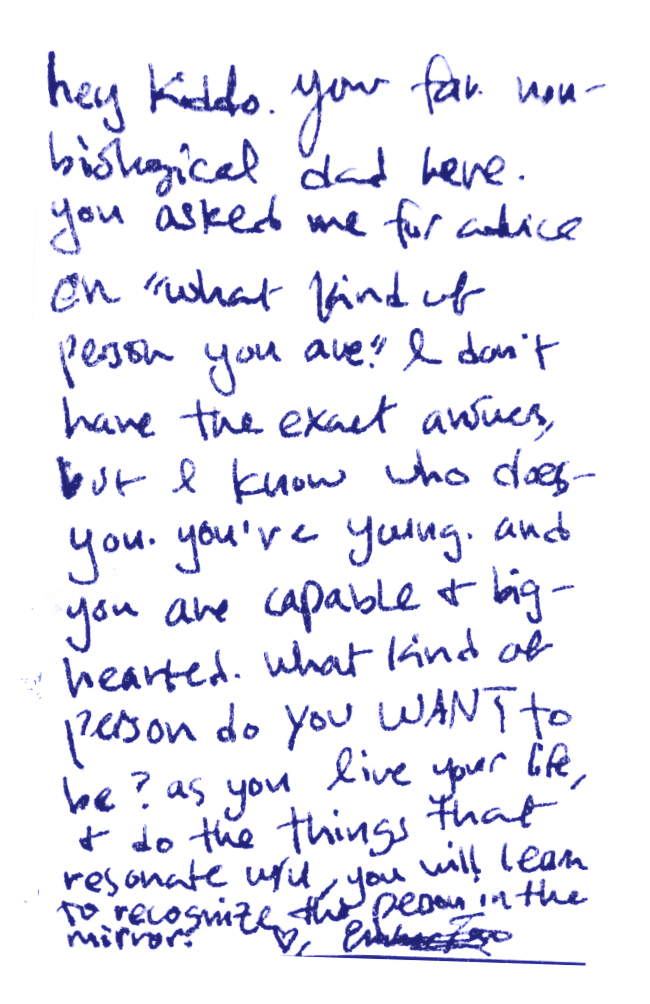 hey kiddo. your fav. non-
biological dad here.
you asked me for advice
on "what kind of
person you are." I don't
have the exact answer,
but I know who does–
you. you're young. and
you are capable & big-
hearted. what kind of
person do YOU WANT to
be? as you live your life,
& do the things that
resonate w/u, you will learn
to recognize the person in the
mirror. ♡,